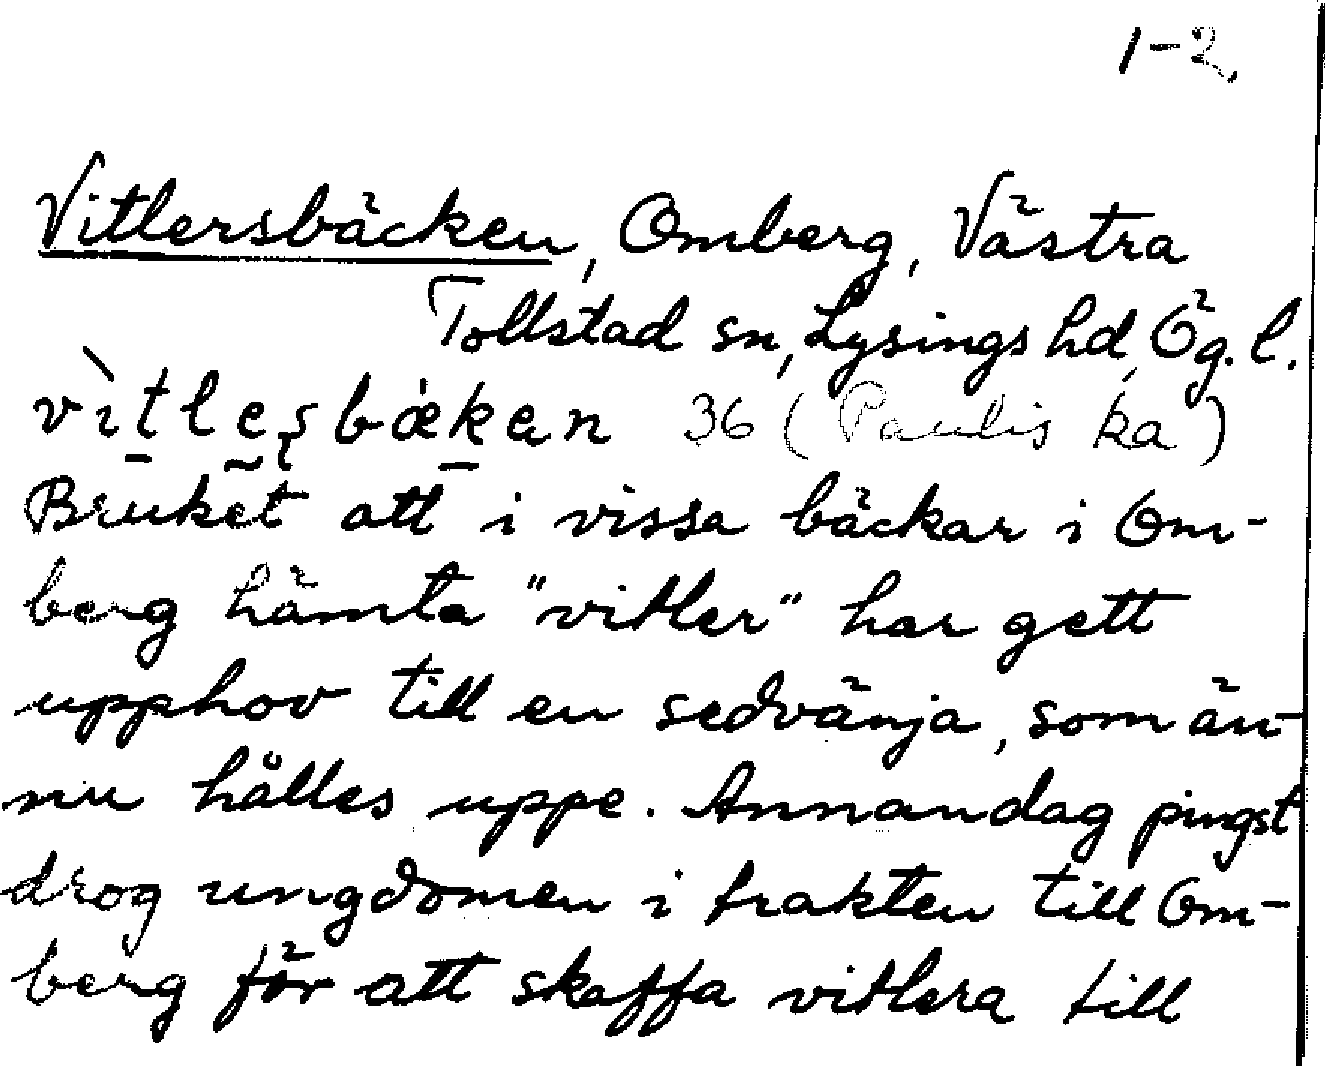 1-2.
Vitlersbäcken, Omberg, Västra
Tollstad sn, Lysings hd, Ög. l.
vìtlesbæken 36 (Paulis ka)
Bruket att i vissa bäckar i Om-
berg hämta "vitler" har gett
upphov till en sedvänja, som än-
nu hålles uppe. Annandag pingst
drog ungdomen i trakten till Om-
berg för att skaffa vitlera till